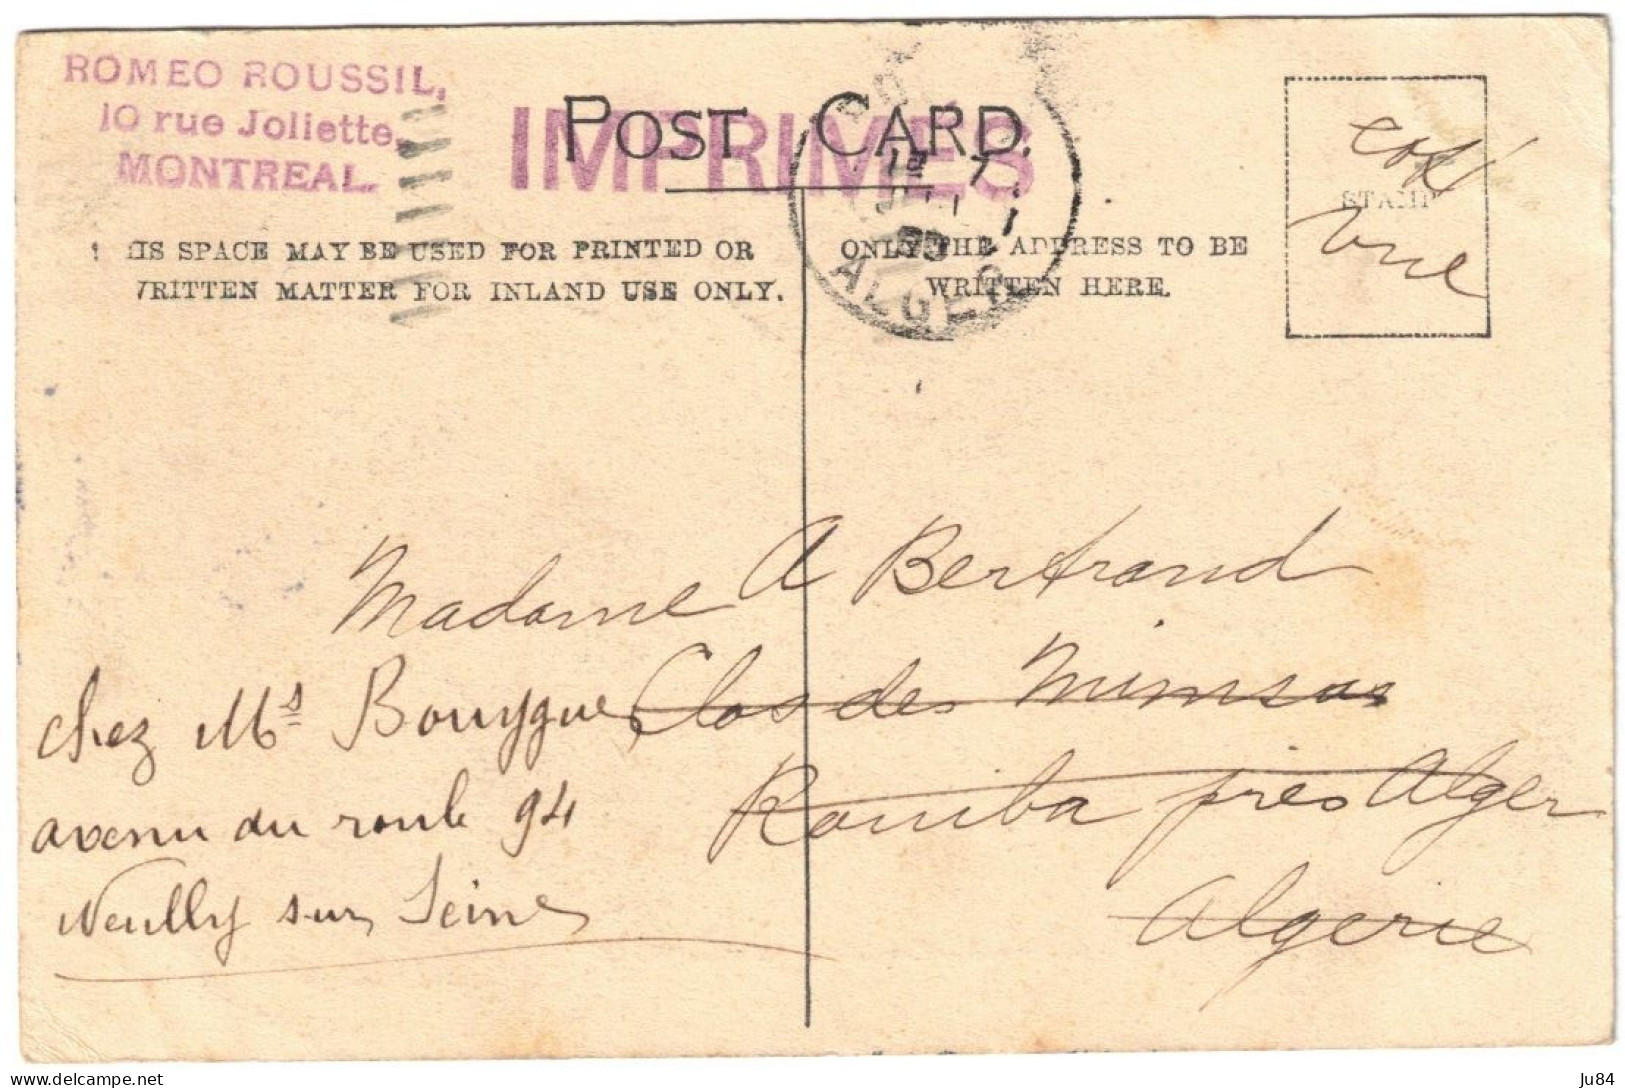 ROMEO ROUSSIL,
10 rue Joliette,
MONTREAL.
IMPRIMÉS
POST CARD.
STAMP
vue
ALGER
HIS SPACE MAY BE USED FOR PRINTED OR
WRITTEN MATTER FOR INLAND USE ONLY.
ONLY THE ADDRESS TO BE
WRITTEN HERE.
Madame A Bertrand
Clos des Mimosas
Rouiba près Alger
Algerie
chez Ms Bouygues
avenu du roule 94
Neuilly sur Seine
Ju84